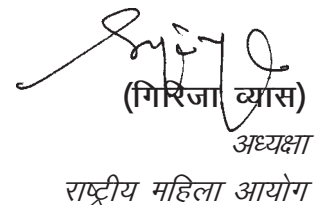 (गिरिजा व्यास)
अध्यक्षा
राष्ट्रीय महिला आयोग